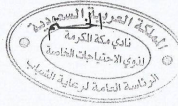 المملكة العربية السعودية
نادي مكة المكرمة
لذوي الاحتياجات الخاصة
الرئاسة العامة لرعاية الشباب